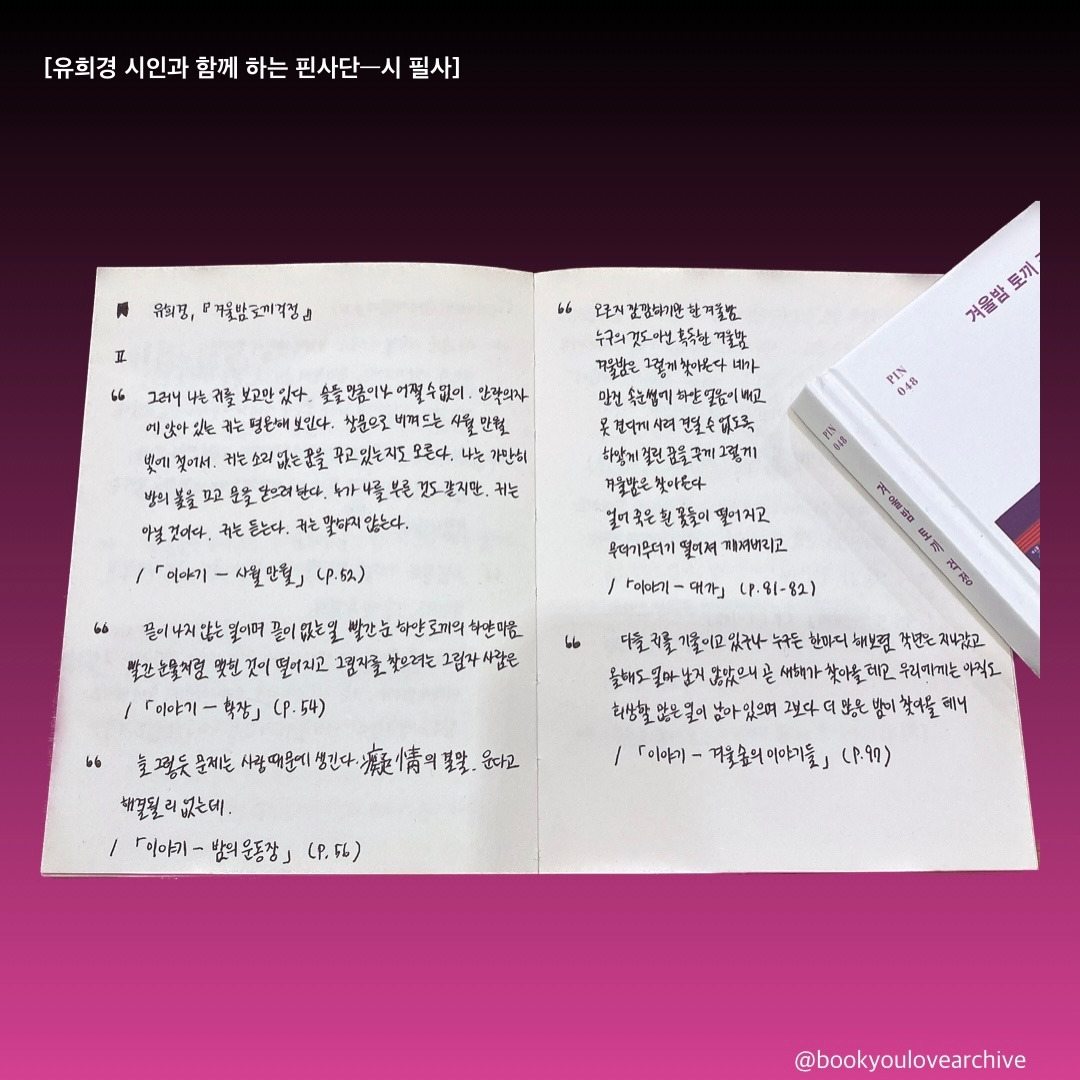 [유희경 시인과 함께 하는 핀사단—시 필사]
유희경, 『겨울밤 토끼 걱정』
Ⅱ
“ 그러니 나는 귀를 보고만 있다. 슬플 만큼이나 어쩔 수 없이. 안락의자
에 앉아 있는 귀는 평온해 보인다. 창문으로 비껴드는 사월 만월
빛에 젖어서. 귀는 소리 없는 꿈을 꾸고 있는지도 모른다. 나는 가만히
방의 불을 끄고 문을 닫으려 한다. 누가 나를 부른 것도 같지만. 귀는
아닐 것이다. 귀는 듣는다. 귀는 말하지 않는다.
/ 「이야기 – 사월 만월」 (P.52)
“ 끝이 나지 않는 일이며 끝이 없는 일 빨간 눈 하얀 토끼의 하얀 마음
빨간 눈물처럼 맺힌 것이 떨어지고 그림자를 찾으려는 그림자 사람은
/ 「이야기 – 확장」 (P.54)
“ 늘 그렇듯 문제는 사랑 때문에 생긴다. 癡情의 결말. 운다고
해결될 리 없는데.
/ 「이야기 – 밤의 운동장」 (P.56)
“ 오로지 캄캄하기만 한 겨울밤
누구의 것도 아닌 혹독한 겨울밤
겨울밤은 그렇게 찾아온다 네가
만진 속눈썹에 하얀 얼음이 배고
못 견디게 시려 견딜 수 없도록
하얗게 질린 꿈을 꾸게 그렇게
겨울밤은 찾아온다
얼어 죽은 흰 꽃들이 떨어지고
무더기무더기 떨어져 깨져버리고
/ 「이야기 – 대가」 (P.81-82)
“ 다들 귀를 기울이고 있구나 누구든 한마디 해보렴 작년은 지나갔고
올해도 얼마 남지 않았으니 곧 새해가 찾아올 테고 우리에게는 아직도
회상할 많은 일이 남아 있으며 그보다 더 많은 밤이 찾아올 테니
/ 「이야기 – 겨울숲의 이야기들」 (P.97)
겨울밤 토끼
PIN
048
PIN
048
겨울밤 토끼 걱정
@bookyoulovearchive